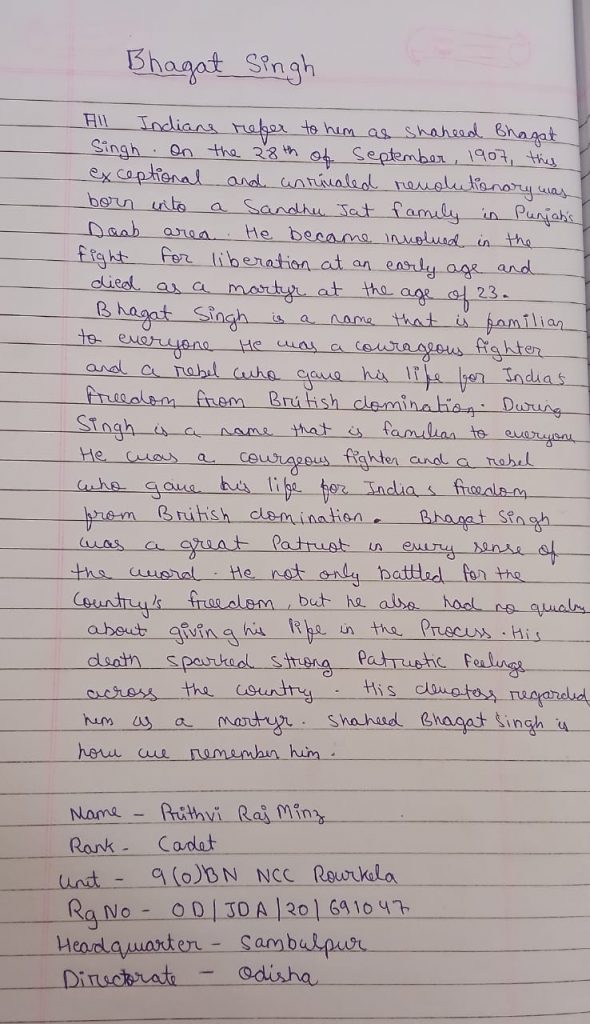 Bhagat Singh
All Indians refer to him as Shaheed Bhagat
Singh. On the 28th of September, 1907, this
exceptional and unrivaled revolutionary was
born into a Sandhu Jat family in Punjab's
Doab area. He became involved in the
fight for liberation at an early age and
died as a martyr at the age of 23.
Bhagat Singh is a name that is familiar
to everyone He was a courageous fighter
and a rebel who gave his life for India's
freedom from British domination. During
Singh is a name that is familiar to everyone
He was a courgeous fighter and a rebel
who gave his life for India s freedom
from British domination. Bhagat Singh
was a great Patriot in every sense of
the word. He not only battled for the
Country's freedom, but he also had no qualms
about giving his life in the Process. His
death sparked strong Patriotic Feelings
across the country. His devotees regarded
him as a martyr. Shaheed Bhagat Singh is
how we remember him.
Name - Prithvi Raj Minz
Rank - Cadet
Unit - 9(O)BN NCC Rourkela
Rg No - OD/JDA/20/691047
Headquarter - Sambalpur
Directorate - Odisha